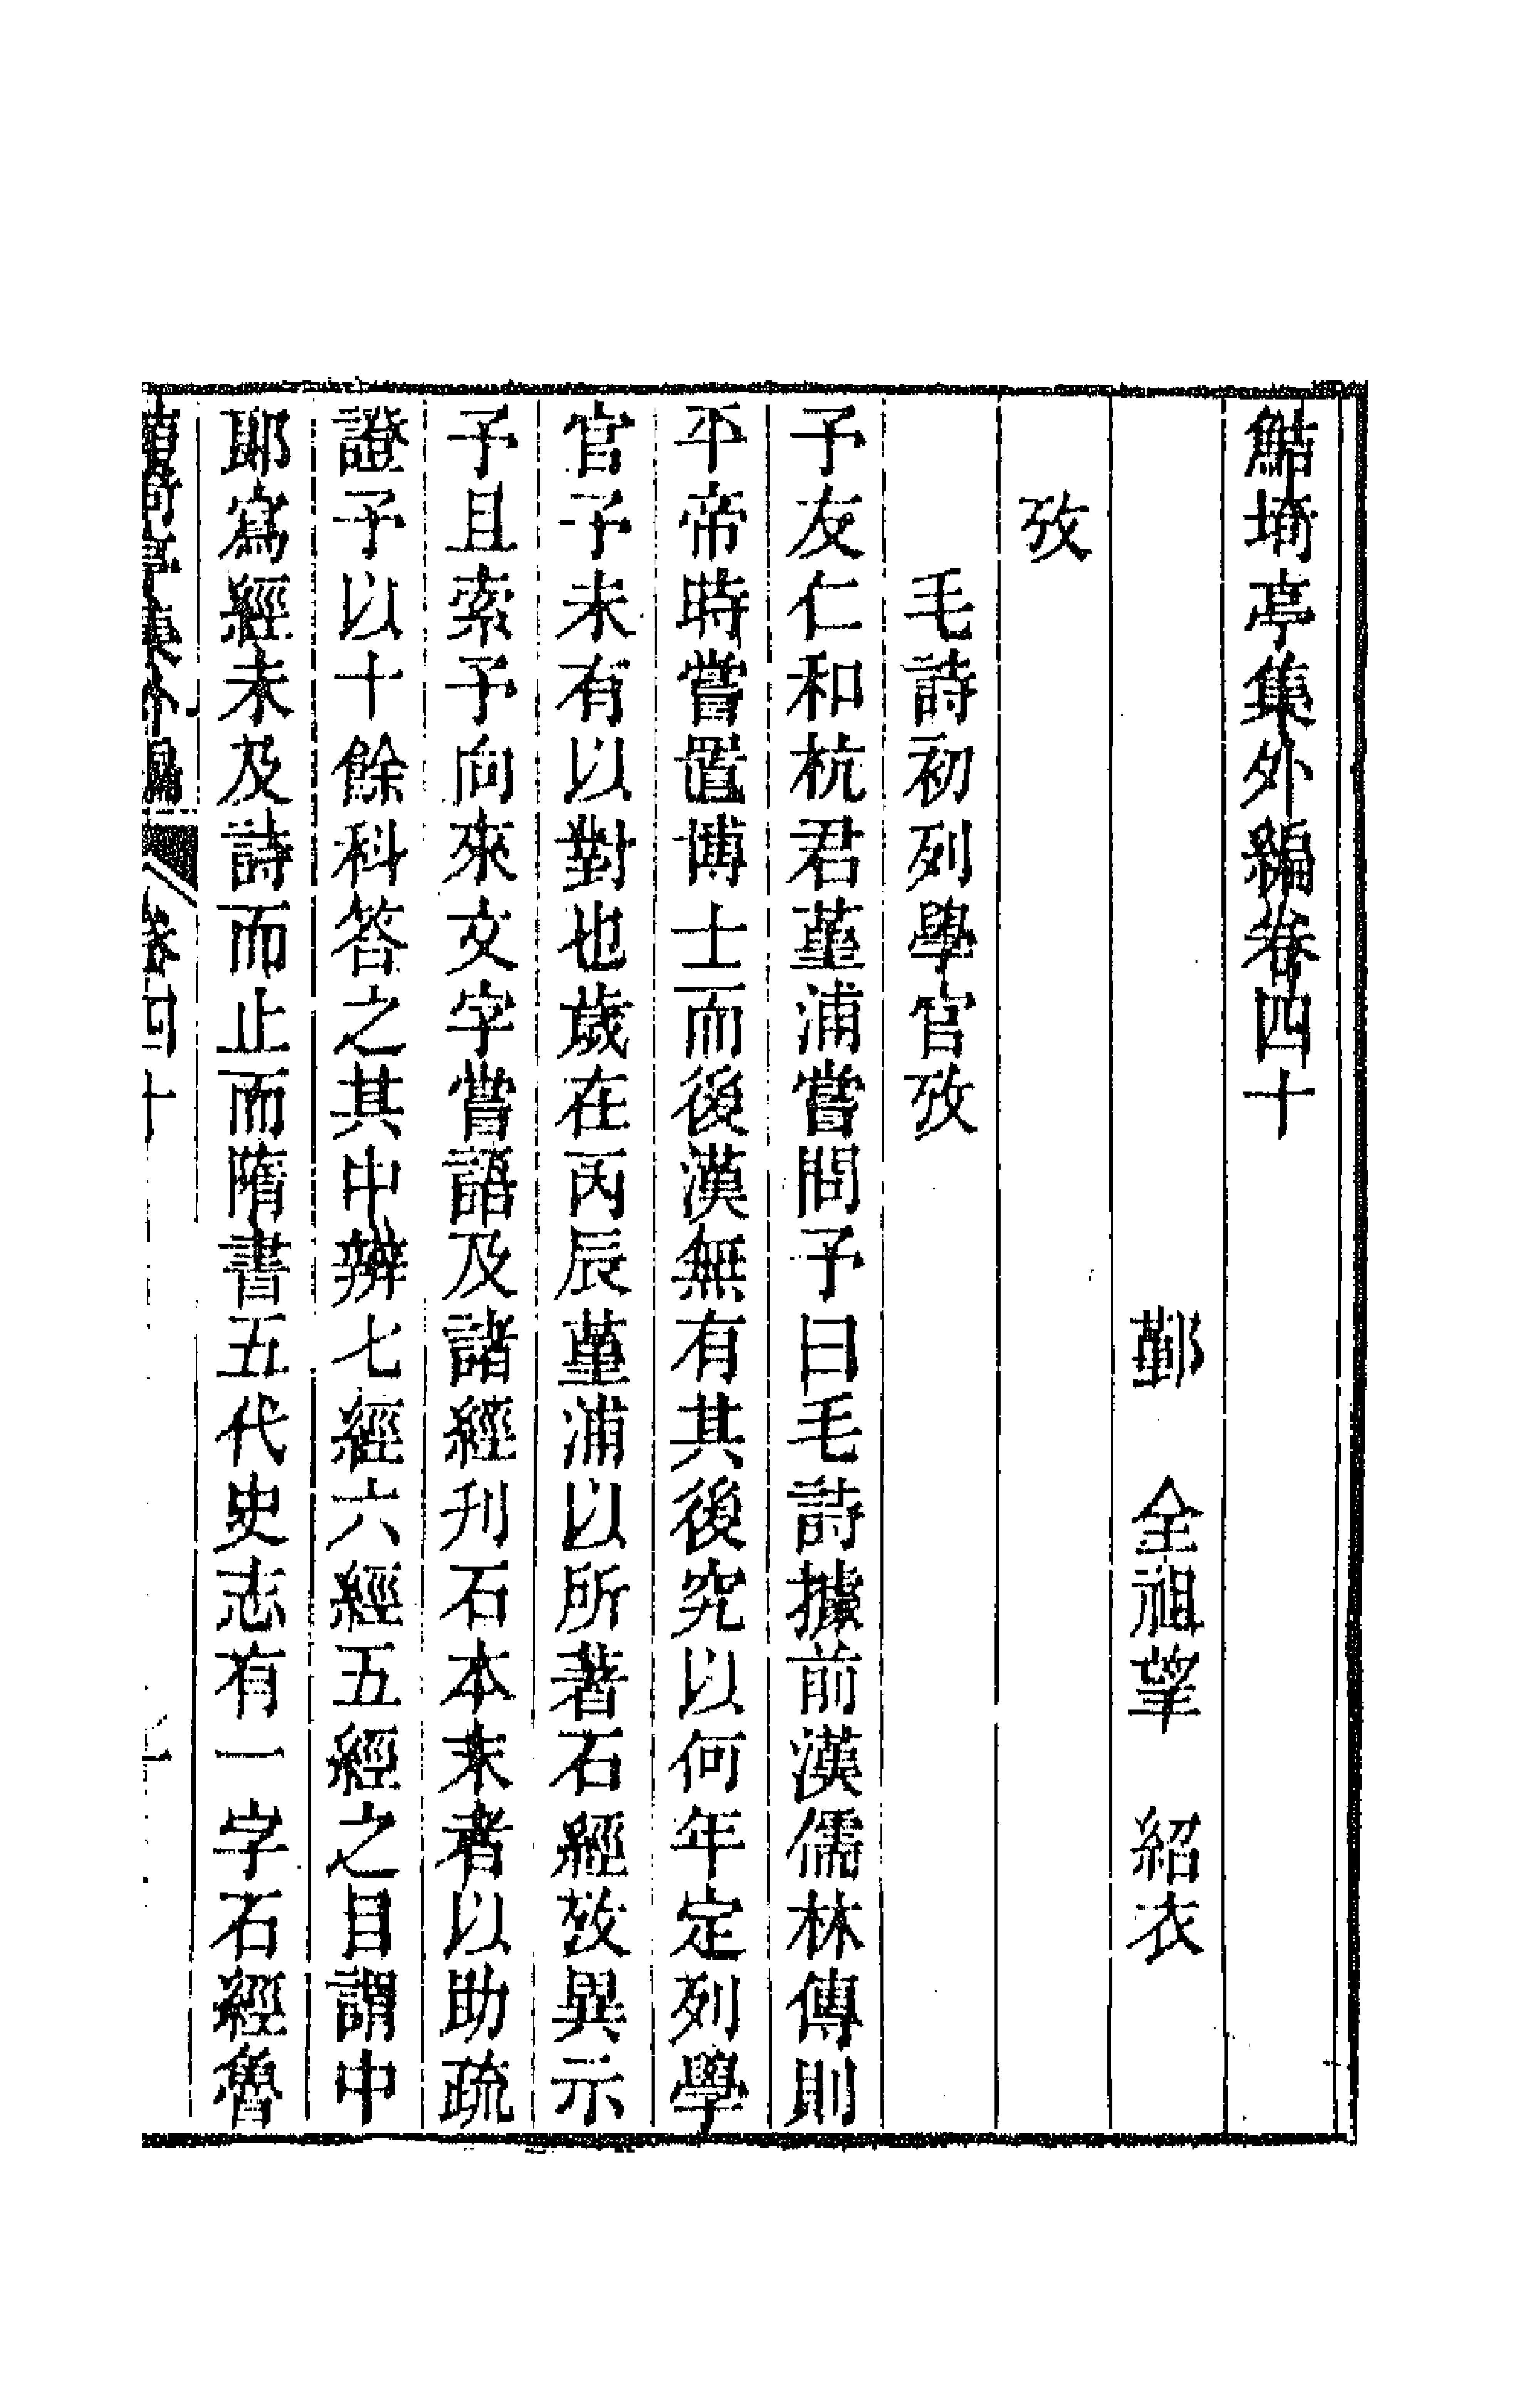 鮚埼亭集外編卷四十
鄞　全祖望　紹衣
攷
毛詩初列學官攷
予友仁和杭君菫浦嘗問予曰毛詩據前漢儒林傳則
平帝時嘗置博士而後漢無有其後究以何年定列學
官予未有以對也歲在丙辰菫浦以所著石經攷異示
予且索予向來文字嘗語及諸經刋石本末者以助疏
證予以十餘科答之其中辨七經六經五經之目謂中
郎寫經未及詩而止而隋書五代史志有一字石經魯
鮚埼亭集外編　卷四十　一